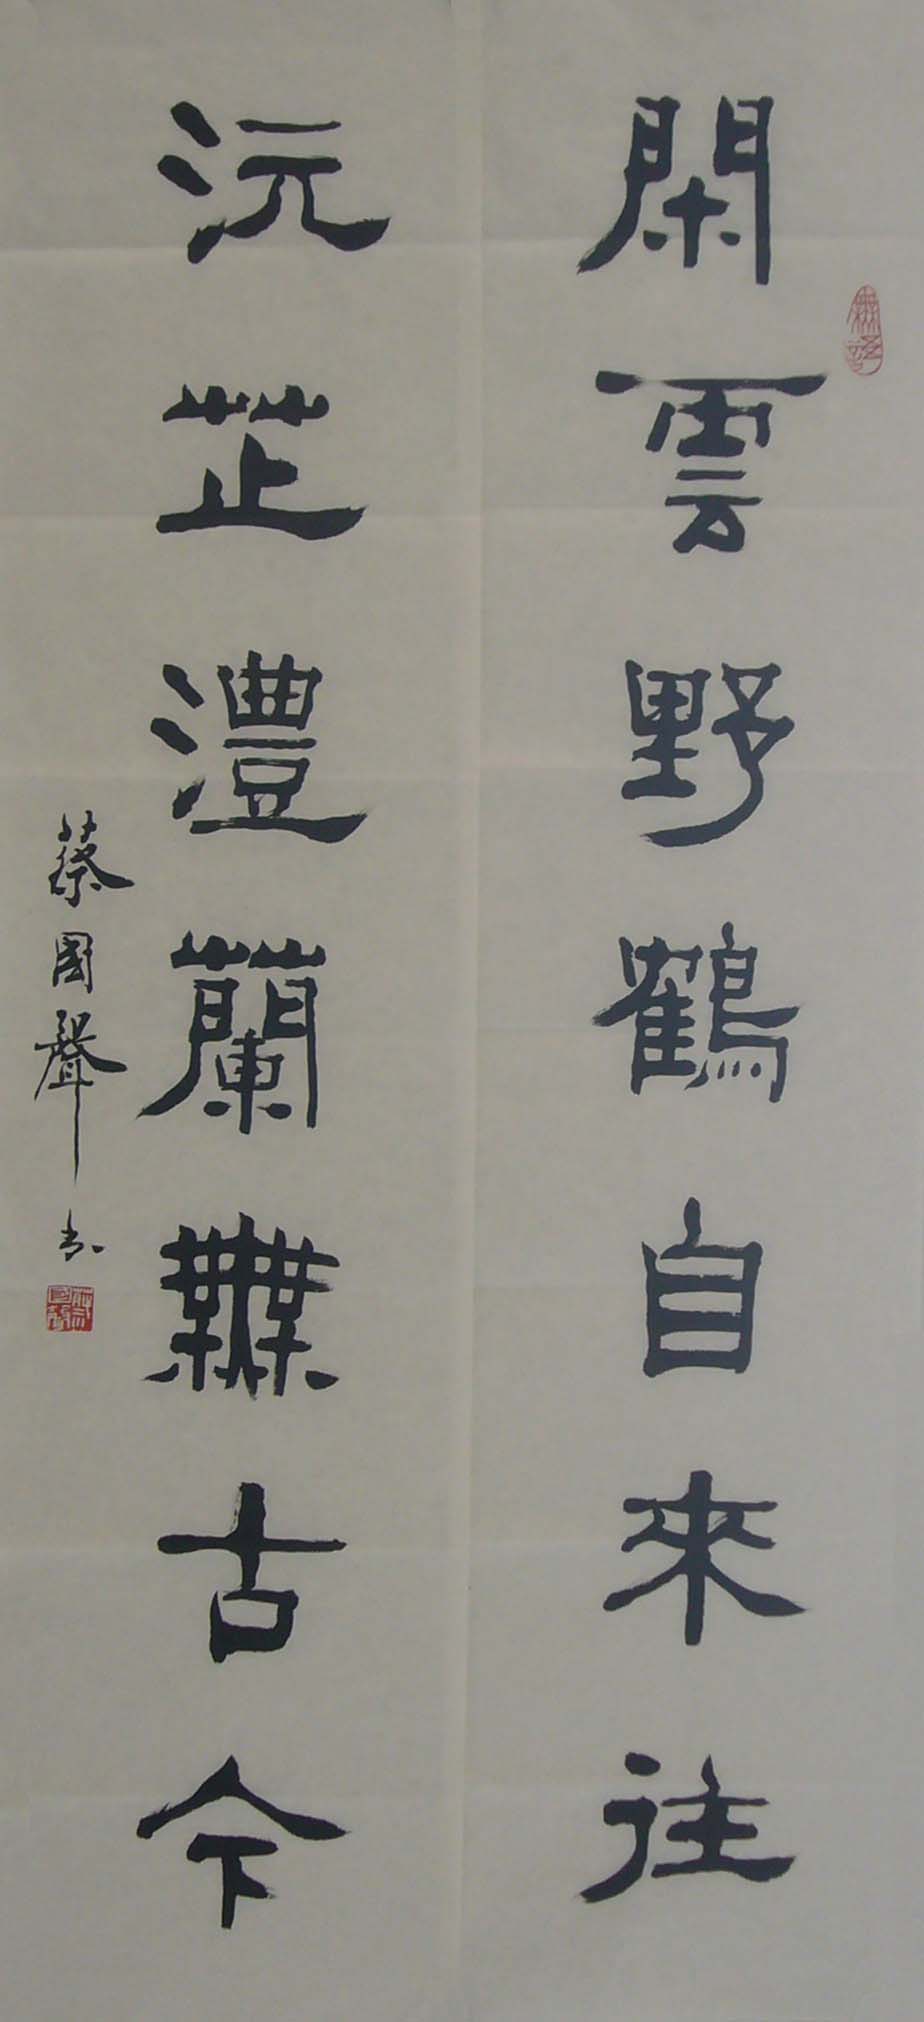 閑雲野鶴自來往
沅芷澧蘭無古今
蔡國聲書